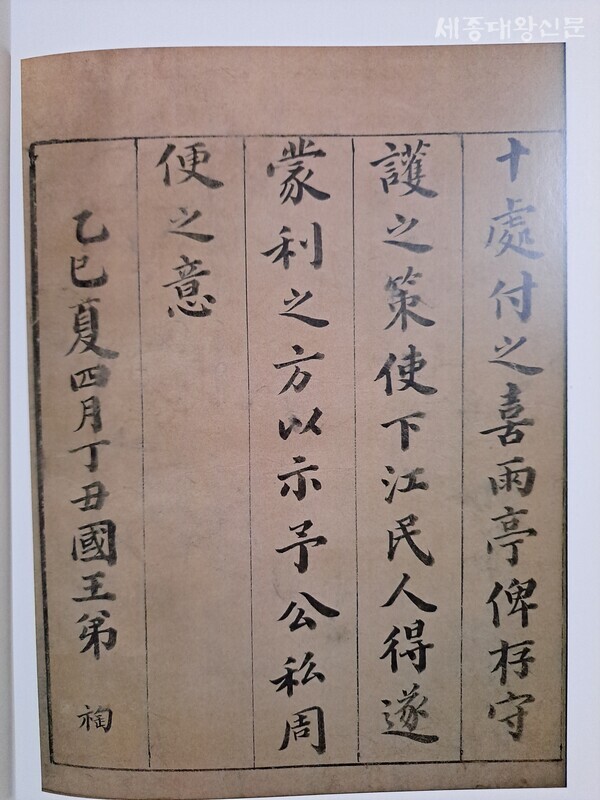 세종대왕신문
十處付之喜雨亭俾存守
護之策使下江民人得遂
蒙利之方以示予公私周
便之意
乙巳夏四月丁丑國王弟 祹